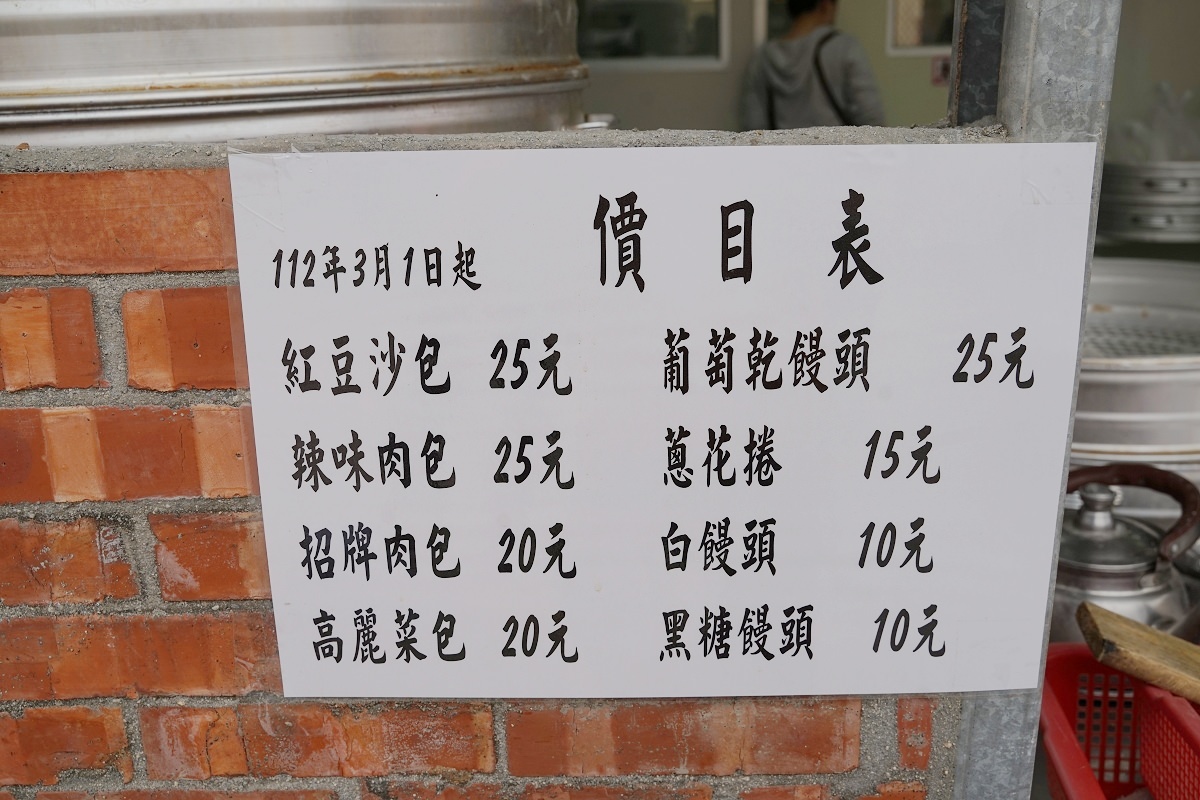 價目表
112年3月1日起
紅豆沙包 25元 葡萄乾饅頭 25元
辣味肉包 25元 蔥花捲 15元
招牌肉包 20元 白饅頭 10元
高麗菜包 20元 黑糖饅頭 10元